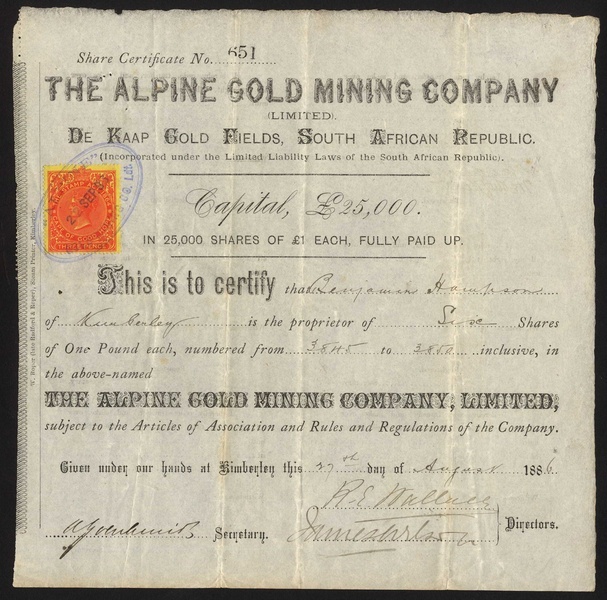 Share Certificate No. 651
THE ALPINE GOLD MINING COMPANY
(LIMITED).
DE KAAP GOLD FIELDS, SOUTH AFRICAN REPUBLIC.
(Incorporated under the Limited Liability Laws of the South African Republic).
Capital, £25,000.
IN 25,000 SHARES OF £1 EACH, FULLY PAID UP.
THREE PENCE
This is to certify that Benjamin Hampson
of Kimberley is the proprietor of Six Shares
of One Pound each, numbered from 3845 to 3850 inclusive, in
the above-named
THE ALPINE GOLD MINING COMPANY, LIMITED,
subject to the Articles of Association and Rules and Regulations of the Company.
Given under our hands at Kimberley this 27th day of August 1886
R. E. Wallace
Secretary. Directors.